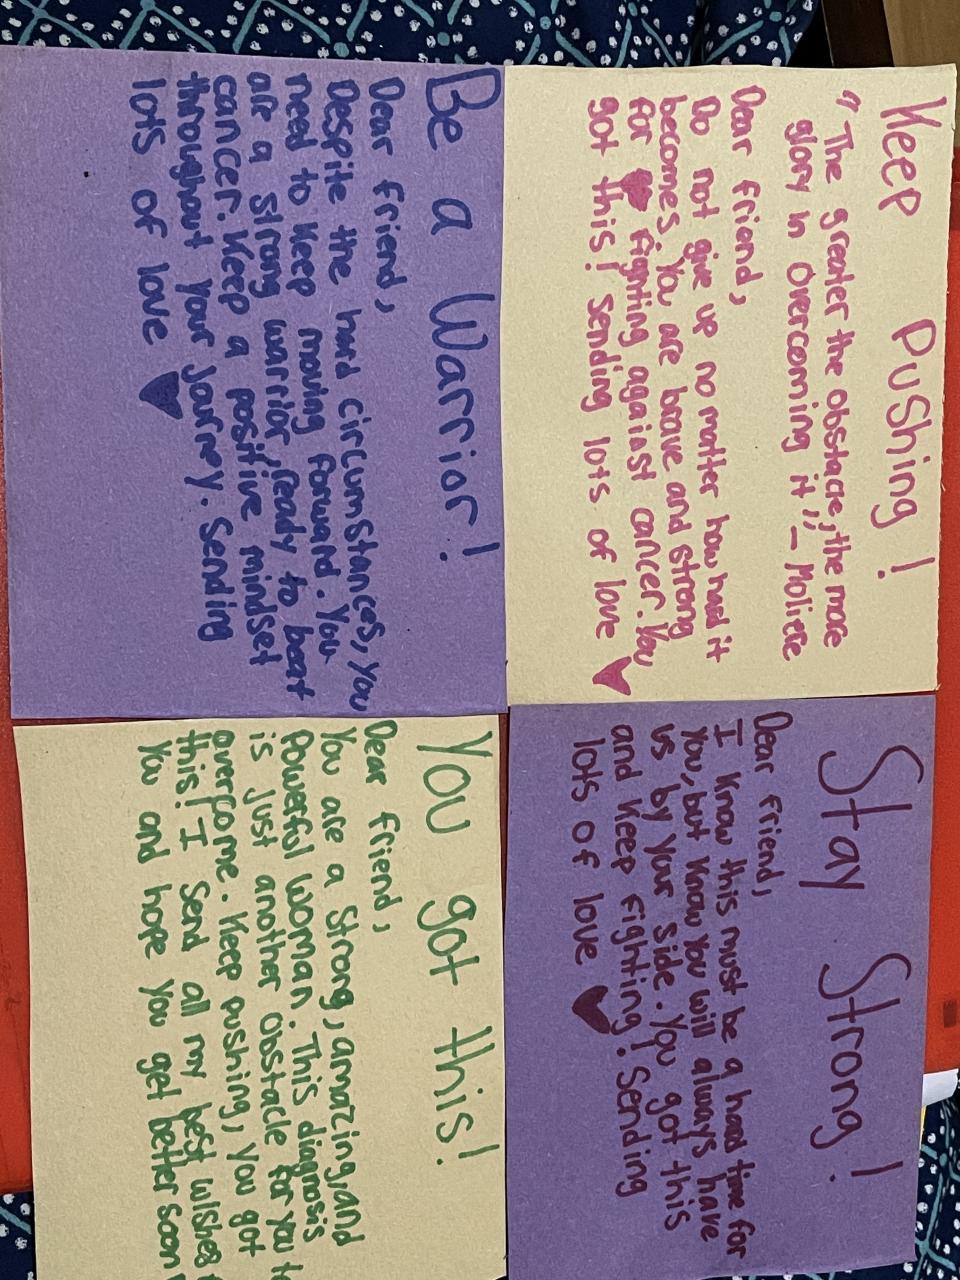 Keep Pushing!
"The greater the obstacle, the more
glory in overcoming it," - Moliere
Dear friend,
Do not give up no matter how hard it
becomes. You are brave and strong
for fighting against cancer. You
got this! Sending lots of love
Stay Strong!
Dear friend,
I know this must be a hard time for
you, but know you will always have
us by your side. You got this
and keep fighting! Sending
lots of love
Be a Warrior!
Dear friend,
Despite the hard circumstances, you
need to keep moving forward. You
are a strong warrior, ready to beat
cancer. Keep a positive mindset
throughout your journey. Sending
lots of love
You got this!
Dear friend,
You are a strong, amazing, and
powerful woman. This diagnosis
is just another obstacle for you to
overcome. Keep pushing, you got
this! I send all my best wishes
you and hope you get better soon